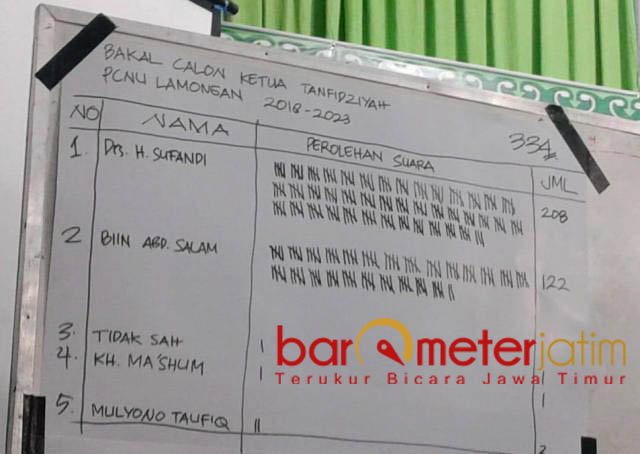 BAKAL CALON KETUA TANFIDZIYAH
PCNU LAMONGAN 2018-2023
334
NO NAMA PEROLEHAN SUARA JML
1. Drs. H. SUFANDI 208
2 BIIN ABD. SALAM 122
3. TIDAK SAH
4. KH. MA'SHUM 1
5. MULYONO TAUFIQ
barometerjatim
Terukur Bicara Jawa Timur